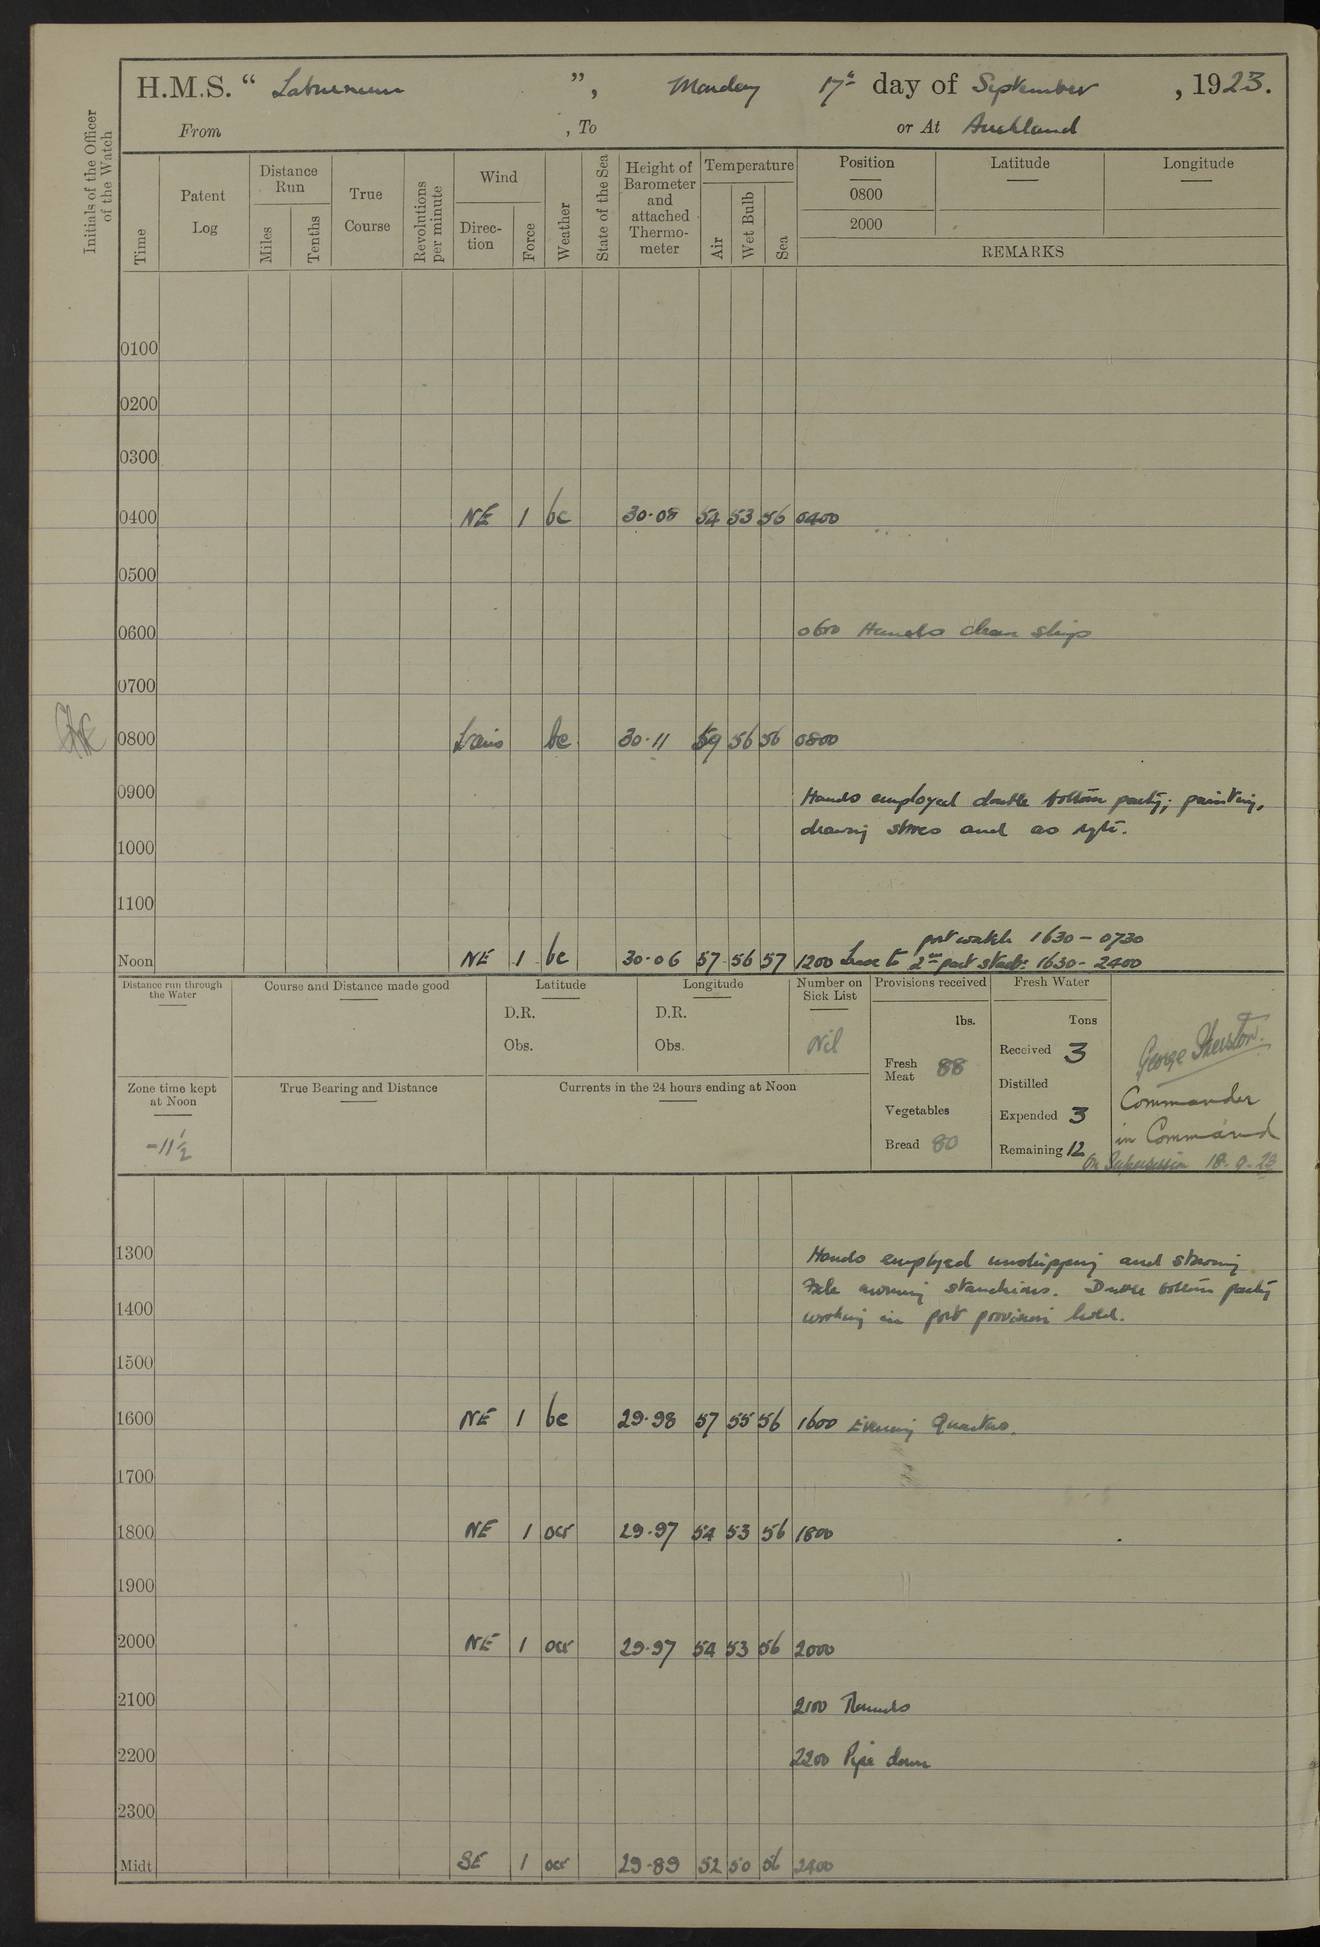 H.M.S. “ Laburnum ”, Monday 17th day of September , 1923.
From , To or At Auckland
Initials of the Officer of the Watch
Time
Patent Log
Distance Run
Miles
Tenths
True Course
Revolutions per minute
Wind
Direc-tion
Force
Weather
State of the Sea
Height of Barometer and attached Thermo-meter
Temperature
Air
Wet Bulb
Sea
Position
Latitude
Longitude
0800
2000
REMARKS
0100
0200
0300
0400 NE 1 bc 30·08 54 53 56 0400
0500
0600 0600 Hands clean ship
0700
0800 bc 30·11 59 56 56 0800
0900 Hands employed double bottom party; painting,
drawing stores and as reqte.
1000
1100
port watch 1630 – 0730
Noon NE 1 bc 30·06 57 56 57 1200 Leave to 2nd part starbd: 1630 – 2400
Distance run through the Water
Course and Distance made good
Latitude
D.R.
Obs.
Longitude
D.R.
Obs.
Number on Sick List
Nil
Provisions received
lbs.
Fresh Meat 88
Vegetables
Bread 80
Fresh Water
Tons
Received 3
Distilled
Expended 3
Remaining 12
George
Commander
in Command
On Supersession 18-9-23
Zone time kept at Noon
-11½
True Bearing and Distance
Currents in the 24 hours ending at Noon
1300 Hands employed unshipping and stowing
awning stanchions. Double bottom party
1400 working in port provision hold.
1500
1600 NE 1 bc 29·98 57 55 56 1600 Evening Quarters.
1700
1800 NE 1 ocr 29·97 54 53 56 1800
1900
2000 NE 1 ocr 29·97 54 53 56 2000
2100 2100 Rounds
2200 2200 Pipe down
2300
Midt SE 1 ocr 29·89 52 50 56 2400